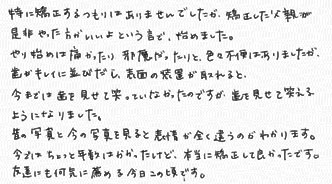 特に矯正するつもりはありませんでしたが、矯正した父親が
是非やった方がいいよという言で、始めました。
やり始めは痛かったり邪魔だったりと、色々不便はありましたが、
歯がキレイに並びだし、表面の装置が取れると、
今までは歯を見せて笑っていなかったのですが、歯を見せて笑える
ようになりました。
昔の写真と今の写真を見ると表情が全く違うのがわかります。
今ではちょっと年数はかかったけど、本当に矯正して良かったです。
友達にも何気に薦める今日この頃です。